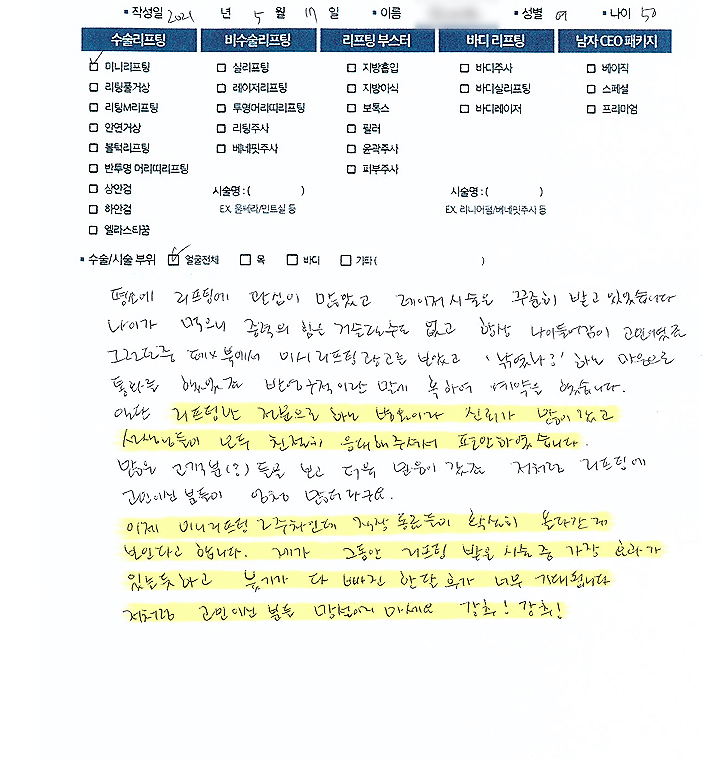 ▪ 작성일 2021 년 5 월 17 일 ▪ 이름 ▪ 성별 여 ▪ 나이 50
수술리프팅 비수술리프팅 리프팅 부스터 바디 리프팅 남자 CEO 패키지
미니리프팅 실리프팅 지방흡입 바디주사 베이직
리팅풀거상 레이저리프팅 지방이식 바디실리프팅 스페셜
리팅M리프팅 투명머리띠리프팅 보톡스 바디레이저 프리미엄
안면거상 리팅주사 필러
볼턱리프팅 베네핏주사 윤곽주사
반투명 머리띠리프팅 피부주사
상안검 시술명 : ( ) 시술명 : ( )
하안검 EX. 울쎄라/민트실 등 EX. 리니어펌/베네핏주사 등
엘라스티꿈
▪ 수술/시술 부위 얼굴전체 목 바디 기타 ( )
평소에 리프팅에 관심이 많았고 레이저시술은 꾸준히 받고 있었습니다
나이가 먹으니 중력의 힘은 거스를수도 없고 항상 나이들어감이 고민이였죠
그러던중 페x북에서 미니리프팅광고를 보았고 '낚였나?' 하는 마음으로
통화를 했었죠 반영구적이란 말에 혹하여 예약을 했습니다.
일단 리프팅만 전문으로 하는 병원이라 신뢰가 많이 갔고
선생님들이 모두 친절히 응대해주셔서 편안하였습니다.
많은 고객분(?)들을 보고 더욱 믿음이 갔죠 저처럼 리프팅에
고민이신 분들이 엄청 많더라구요.
이제 미니리프팅 2주차인데 직장 동료들이 확실히 올라간게
보인다고 합니다. 제가 그동안 리프팅 받은 시술중 가장 효과가
있는듯하고 붓기가 다 빠진 한달 후가 너무 기대됩니다
저처럼 고민이신 분들 망설이지 마세요 강추! 강추!